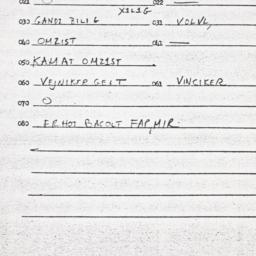 021 O 022 —
X1L1G
030 GANDZ ZILIG 033 VOLVL,
040 OMZIST 041 —
050 KAMAT OMZIST
060 VEJNIKER GELT 061 VINCIKER
070 O
080 ERHOT BACOLT FARMIR